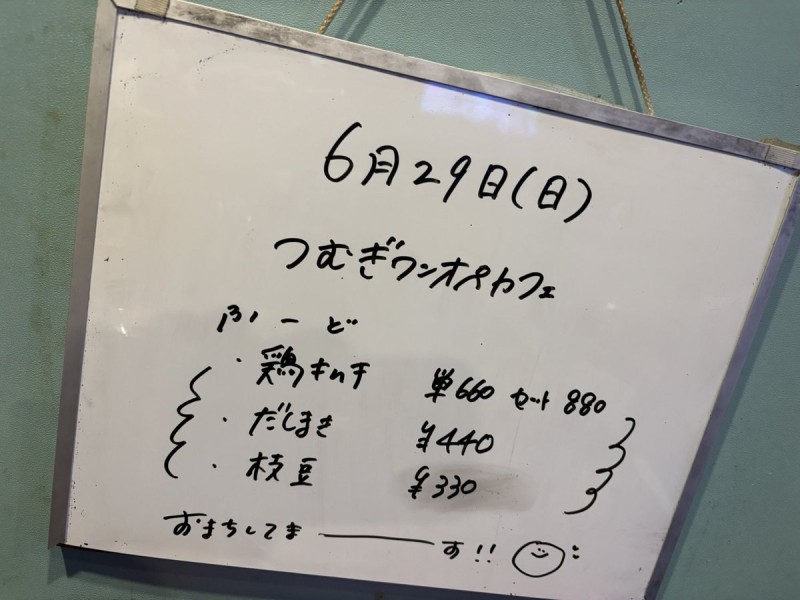 6月29日(日)
つむぎワンオペカフェ
ふーど
・鶏キムチ 単660 セット 880
・だしまき ¥440
・枝豆 ¥330
おまちしてま―――す!!